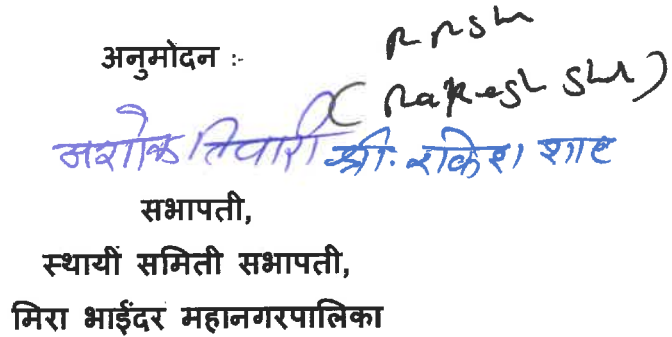 अनुमोदन :-
(Rakesh Shah)
अशोक तिवारी श्री. राकेश शाह
सभापती,
स्थायी समिती सभापती,
मिरा भाईंदर महानगरपालिका